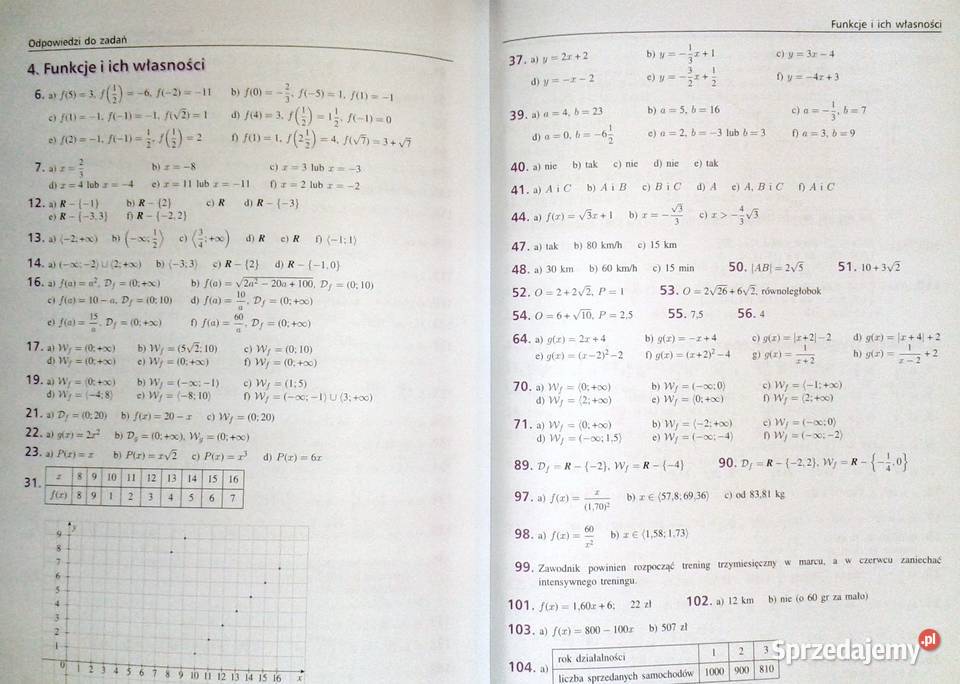 Odpowiedzi do zadań
4. Funkcje i ich własności
6. a) f(5) = 3, f(1/2) = −6, f(−2) = −11 b) f(0) = −2/3, f(−5) = 1, f(1) = −1
c) f(1) = −1, f(−1) = −1, f(√2) = 1 d) f(4) = 3, f(1/2) = 1 1/2, f(−1) = 0
e) f(2) = −1, f(−1) = 1/2, f(1/2) = 2 f) f(1) = 1, f(2 1/2) = 4, f(√7) = 3 + √7
7. a) x = 2/3 b) x = −8 c) x = 3 lub x = −3
d) x = 4 lub x = −4 e) x = 11 lub x = −11 f) x = 2 lub x = −2
12. a) R − {−1} b) R − {2} c) R d) R − {−3}
e) R − {−3,3} f) R − {−2,2}
13. a) ⟨−2;+∞) b) (−∞; 1/2⟩ c) ⟨3/4; +∞) d) R e) R f) ⟨−1;1⟩
14. a) (−∞;−2⟩ ∪ ⟨2;+∞) b) ⟨−3;3⟩ c) R − {2} d) R − {−1,0}
16. a) f(a) = a², Df = (0;+∞) b) f(a) = √2a² − 20a + 100, Df = (0;10)
c) f(a) = 10 − a, Df = (0;10) d) f(a) = 10/a, Df = (0;+∞)
e) f(a) = 15/a, Df = (0;+∞) f) f(a) = 60/a, Df = (0;+∞)
17. a) Wf = (0;+∞) b) Wf = ⟨5√2;10) c) Wf = (0;10)
d) Wf = (0;+∞) e) Wf = (0;+∞) f) Wf = (0;+∞)
19. a) Wf = ⟨0;+∞) b) Wf = (−∞;−1) c) Wf = (1;5)
d) Wf = ⟨−4;8⟩ e) Wf = ⟨−8;10⟩ f) Wf = (−∞;−1) ∪ ⟨3;+∞)
21. a) Df = (0;20) b) f(x) = 20 − x c) Wf = (0;20)
22. a) g(x) = 2x² b) Dg = (0;+∞), Wg = (0;+∞)
23. a) P(x) = x b) P(x) = x√2 c) P(x) = x³ d) P(x) = 6x
31. x 8 9 10 11 12 13 14 15 16
f(x) 8 9 1 2 3 4 5 6 7
y
9
8
7
6
5
4
3
2
1
0 1 2 3 4 5 6 7 8 9 10 11 12 13 14 15 16 x
Funkcje i ich własności
37. a) y = 2x + 2 b) y = −1/3x + 1 c) y = 3x − 4
d) y = −x − 2 e) y = −3/2x + 1/2 f) y = −4x + 3
39. a) a = 4, b = 23 b) a = 5, b = 16 c) a = −1/3, b = 7
d) a = 0, b = −6 1/2 e) a = 2, b = −3 lub b = 3 f) a = 3, b = 9
40. a) nie b) tak c) nie d) nie e) tak
41. a) A i C b) A i B c) B i C d) A e) A, B i C f) A i C
44. a) f(x) = √3x + 1 b) x = −√3/3 c) x > −4/3√3
47. a) tak b) 80 km/h c) 15 km
48. a) 30 km b) 60 km/h c) 15 min 50. |AB| = 2√5 51. 10 + 3√2
52. O = 2 + 2√2, P = 1 53. O = 2√26 + 6√2, równoległobok
54. O = 6 + √10, P = 2,5 55. 7,5 56. 4
64. a) g(x) = 2x + 4 b) g(x) = −x + 4 c) g(x) = |x+2| − 2 d) g(x) = |x+4| + 2
e) g(x) = (x−2)² − 2 f) g(x) = (x+2)² − 4 g) g(x) = 1/x+2 h) g(x) = 1/x−2 + 2
70. a) Wf = ⟨0;+∞) b) Wf = (−∞;0⟩ c) Wf = ⟨−1;+∞)
d) Wf = ⟨2;+∞) e) Wf = ⟨0;+∞) f) Wf = ⟨2;+∞)
71. a) Wf = ⟨0;+∞) b) Wf = ⟨−2;+∞) c) Wf = (−∞;0⟩
d) Wf = (−∞;1,5⟩ e) Wf = (−∞;−4⟩ f) Wf = (−∞;−2⟩
89. Df = R − {−2}, Wf = R − {−4} 90. Df = R − {−2,2}, Wf = R − {−1/4,0}
97. a) f(x) = x/(1,70)² b) x ∈ ⟨57,8;69,36⟩ c) od 83,81 kg
98. a) f(x) = 60/x² b) x ∈ ⟨1,58;1,73⟩
99. Zawodnik powinien rozpocząć trening trzymiesięczny w marcu, a w czerwcu zaniechać
intensywnego treningu.
101. f(x) = 1,60x + 6; 22 zł 102. a) 12 km b) nie (o 60 gr za mało)
103. a) f(x) = 800 − 100x b) 507 zł
104. a) rok działalności 1 2 3
liczba sprzedanych samochodów 1000 900 810
Sprzedajemy.pl